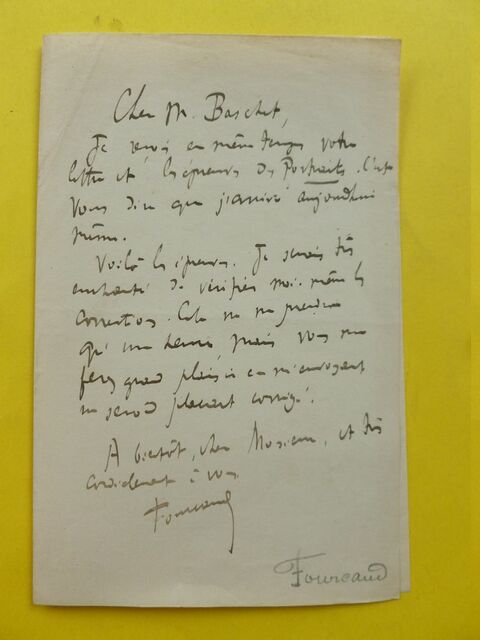 Cher M. Baschet,
Je reçois en même temps votre
lettre et les épreuves des Portraits. C'est
vous dire que j'arrive aujourd'hui
même.
Voilà les épreuves. Je serais très
enchanté de vérifier moi-même les
corrections. Cela ne me prendra
qu'une heure mais vous me
ferez grand plaisir en m'envoyant
un second placard corrigé.
A bientôt, cher Monsieur, et très
cordialement à vous
Fourcaud
Fourcaud